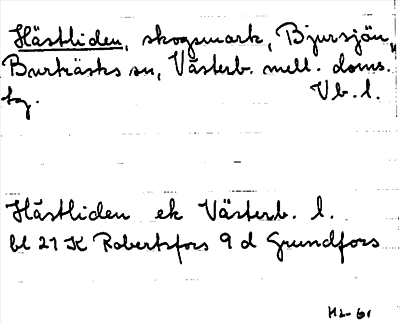 Hästliden, skogsmark, Bjursjön,
Burträsks sn, Västerb. mell. doms.
sg. Vb. l.
Hästliden ek Västerb. l.
bl 21 K Robertsfors 9 d Grundfors
HL-61